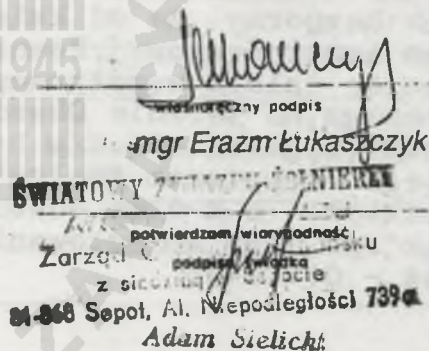 1945
własnoręczny podpis
mgr Erazm Łukaszczyk
ŚWIATOWY ZWIĄZEK ŻOŁNIERZY
potwierdzam wiarygodność
Zarząd
podpisu świadka
z siedzibą w Sopocie
81-868 Sopot, Al. Niepodległości 739a
Adam Sielicki